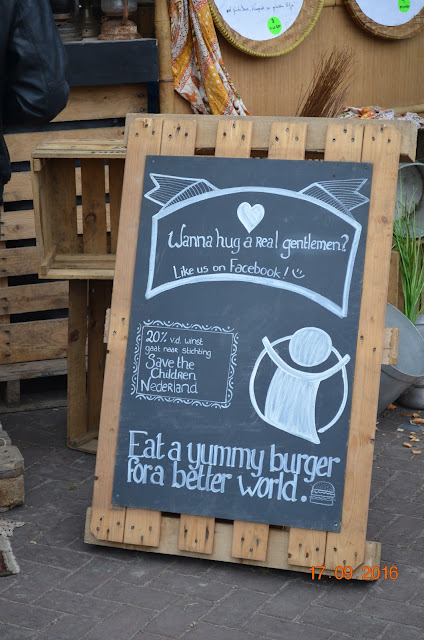 Wanna hug a Real gentlemen?
Like us on Facebook!
20% v.d. winst
gaat naar stichting
Save the
Children
Nederland
Eat a yummy burger
for a better world.
17 09 2016